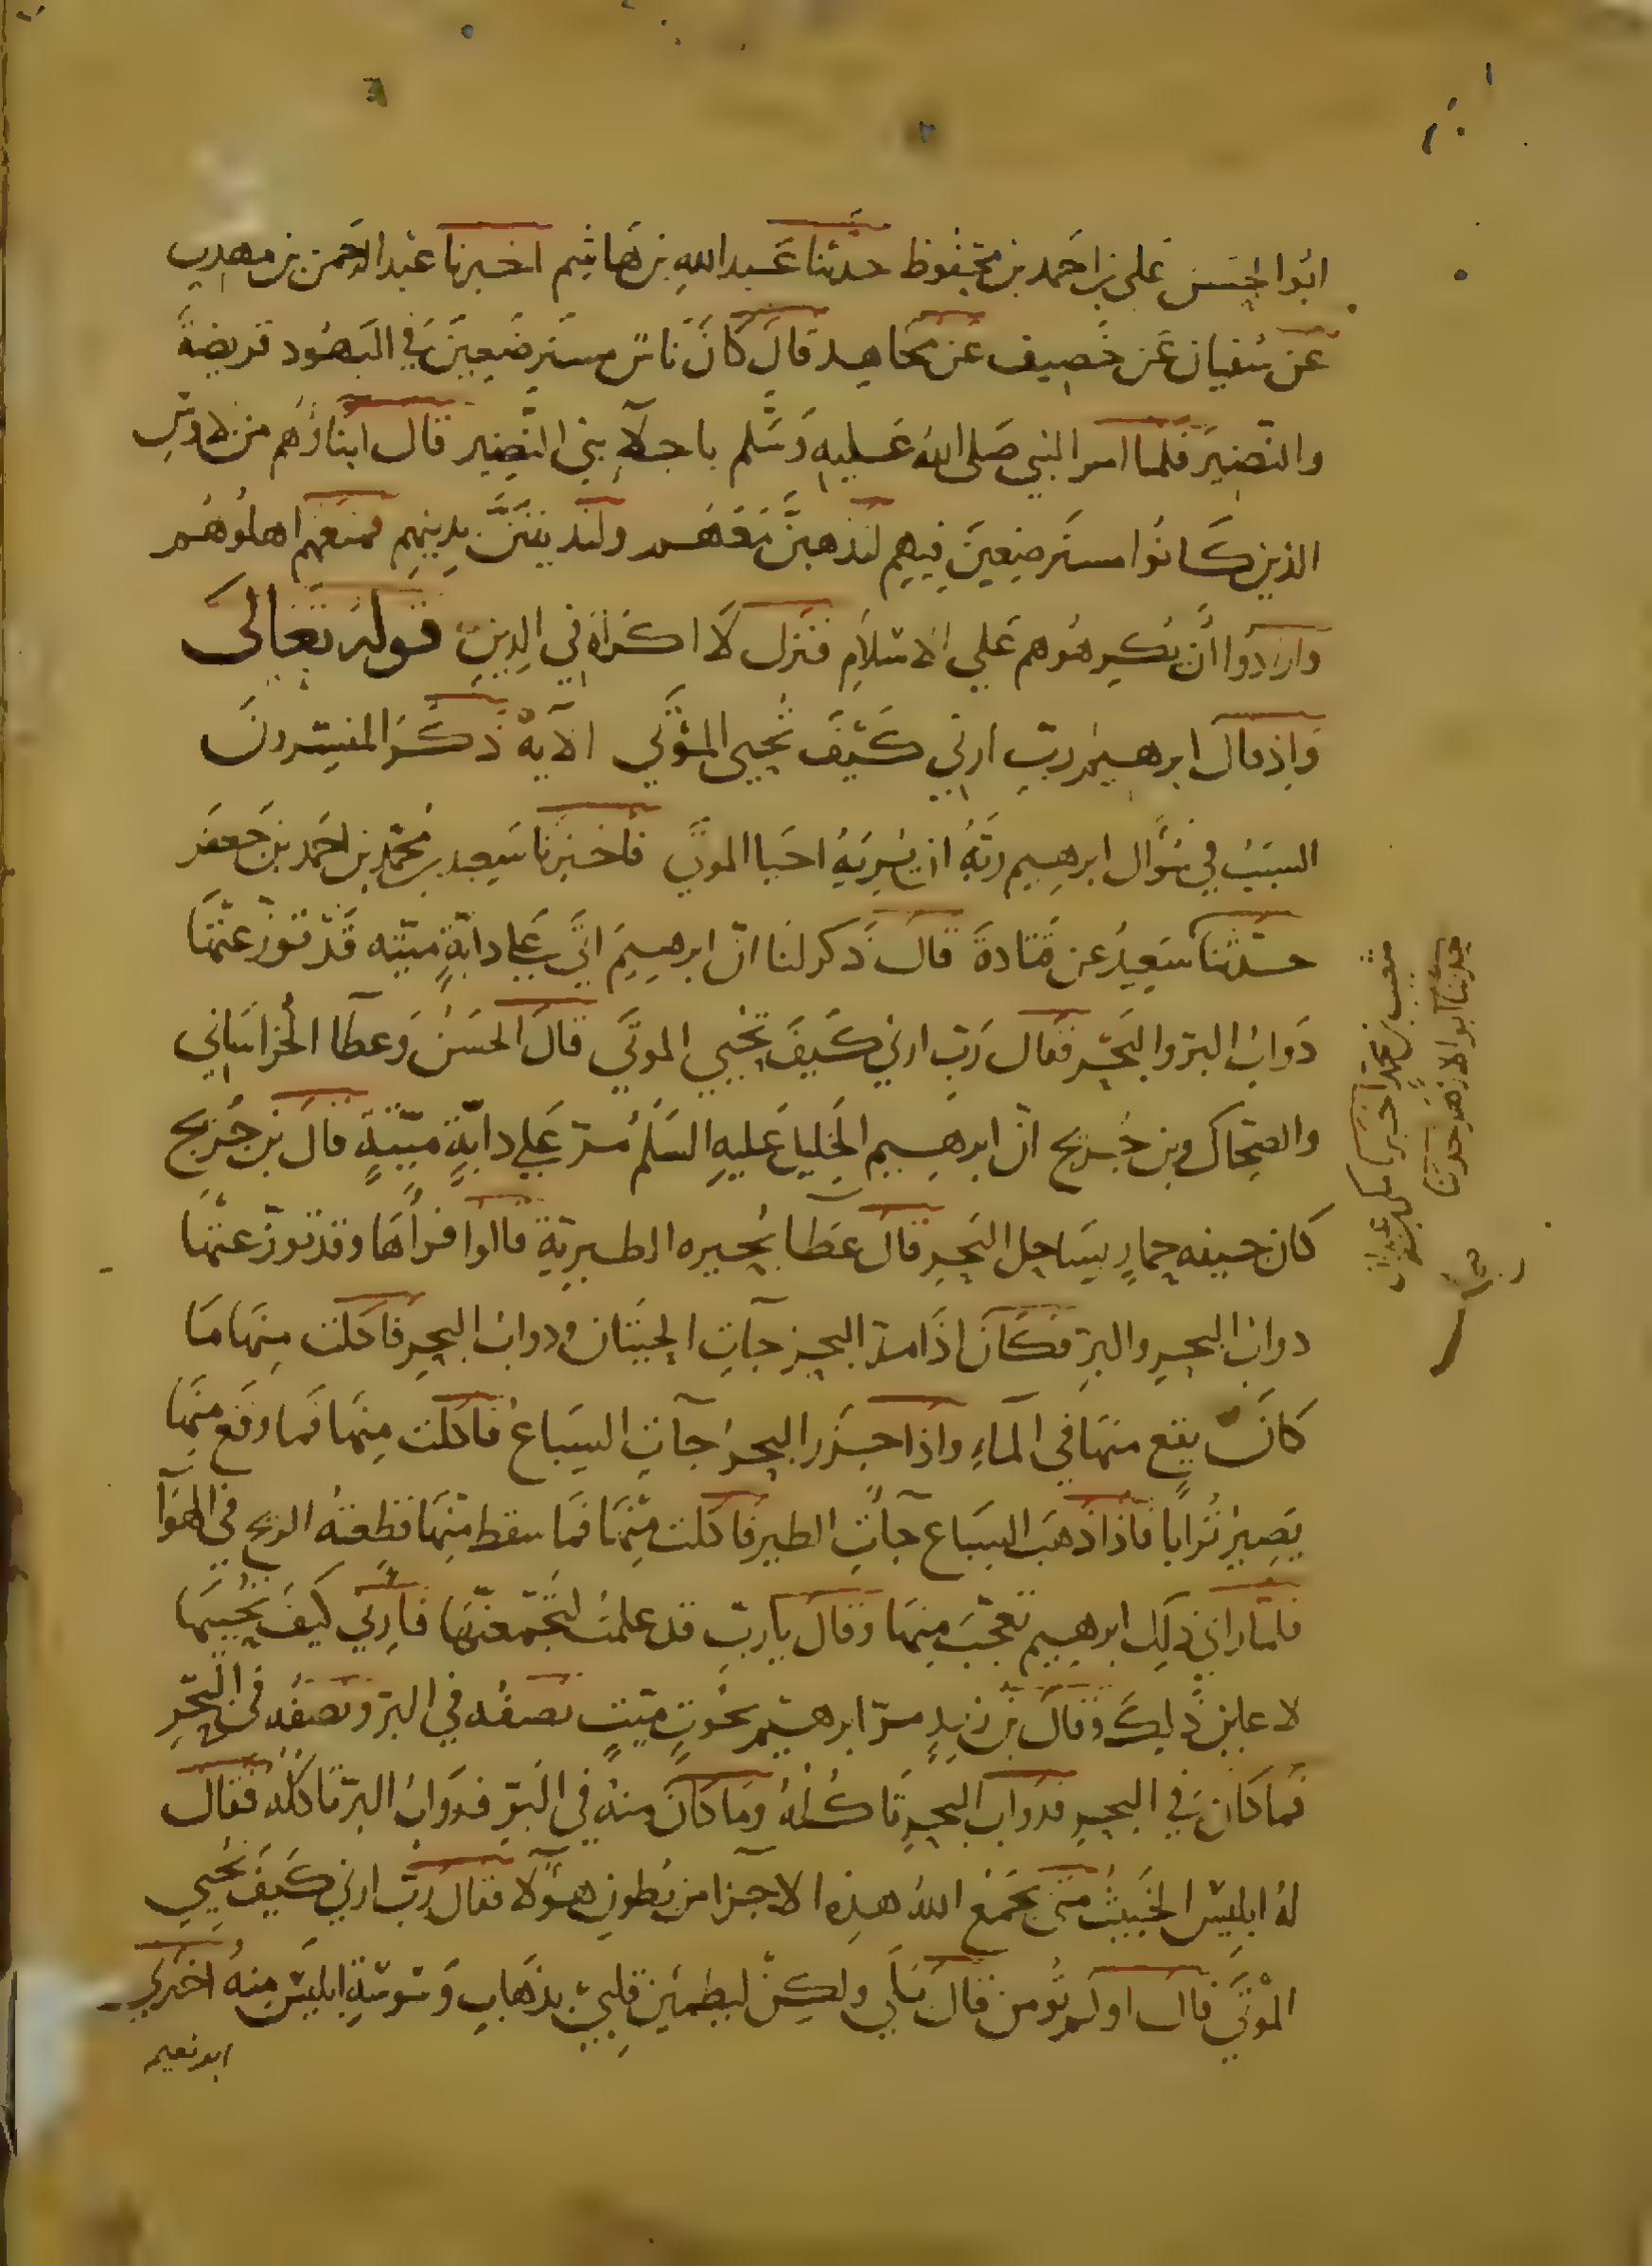 ابوا الحسن علي بن احمد بن محفوظ حدثنا عبد الله بن هاشم اخبرنا عبد الرحمن بن مهدي
عن سفيان عن خصيف عن مجاهد قال كان ناس مسترضعين في اليهود قريضة
والنضير فلما امر النبي صلى الله عليه وسلم باجلآء بني النضير قال ابناؤهم من الاوس
الذين كانوا مسترضعين فيهم لنذهبن معهم ولنديننن بدينهم فمنعهم اهلوهم
وارادوا أن يكرهوهم علي الاسلام فنزل لا اكراه في الدين قوله تعالى
واذ قال ابرهيم رب ارني كيف تحيي الموتي الآية ذكر المفسرون
السبب في سؤال ابرهيم ربه ان يريه احيا الموتي فاخبرنا سعيد بن محمد بن احمد بن جعفر
حدثنا سعيد عن قتادة قال ذكر لنا ان ابرهيم اتي علي دابة ميته قد توزعتها
دواب البر والبحر فقال رب ارني كيف تحيي الموتي قال الحسن وعطآ الخراساني
والضحاك وبن جريج ان ابرهيم الخليل عليه السلم مر علي دابة ميتة قال بن جريج
كان جيفه حمار بساحل البحر قال عطآ بحيره الطبرية قالوا فرأها وقد توزعتها
دواب البحر والبر فكان اذا مد البحر جآت الحيتان ودواب البحر فاكلت منها ما
كان يقع منها في المآء واذا جزر البحر جآت السباع فاكلت منها فما وقع منها
يصير ترابا فاذا ذهب السباع جآت الطير فاكلت منها فما سقط منها قطعته الريح في الهوآ
فلما راي ذلك ابرهيم تعجب منها وقال يا رب قد علمت لتجمعنها فارني كيف تحييها
لاعاين ذلك وقال بن زيد مر ابرهيم بحوت ميت نصفه في البر ونصفه في البحر
فما كان في البحر فدواب البحر تاكله وما كان منه في البر فدواب البر تاكله فقال
له ابليس الخبيث متي يجمع الله هذه الاجزا من بطون هؤلآ فقال رب ارني كيف تحيي
الموتي قال اولم تؤمن قال بلي ولكن ليطمئن قلبي بذهاب وسوسة ابليس منه اخبرني
ابو نعيم
شعيب بن محمد اخبرنا مكي بن عبدان
حدثنا ابو الازهر حدثنا